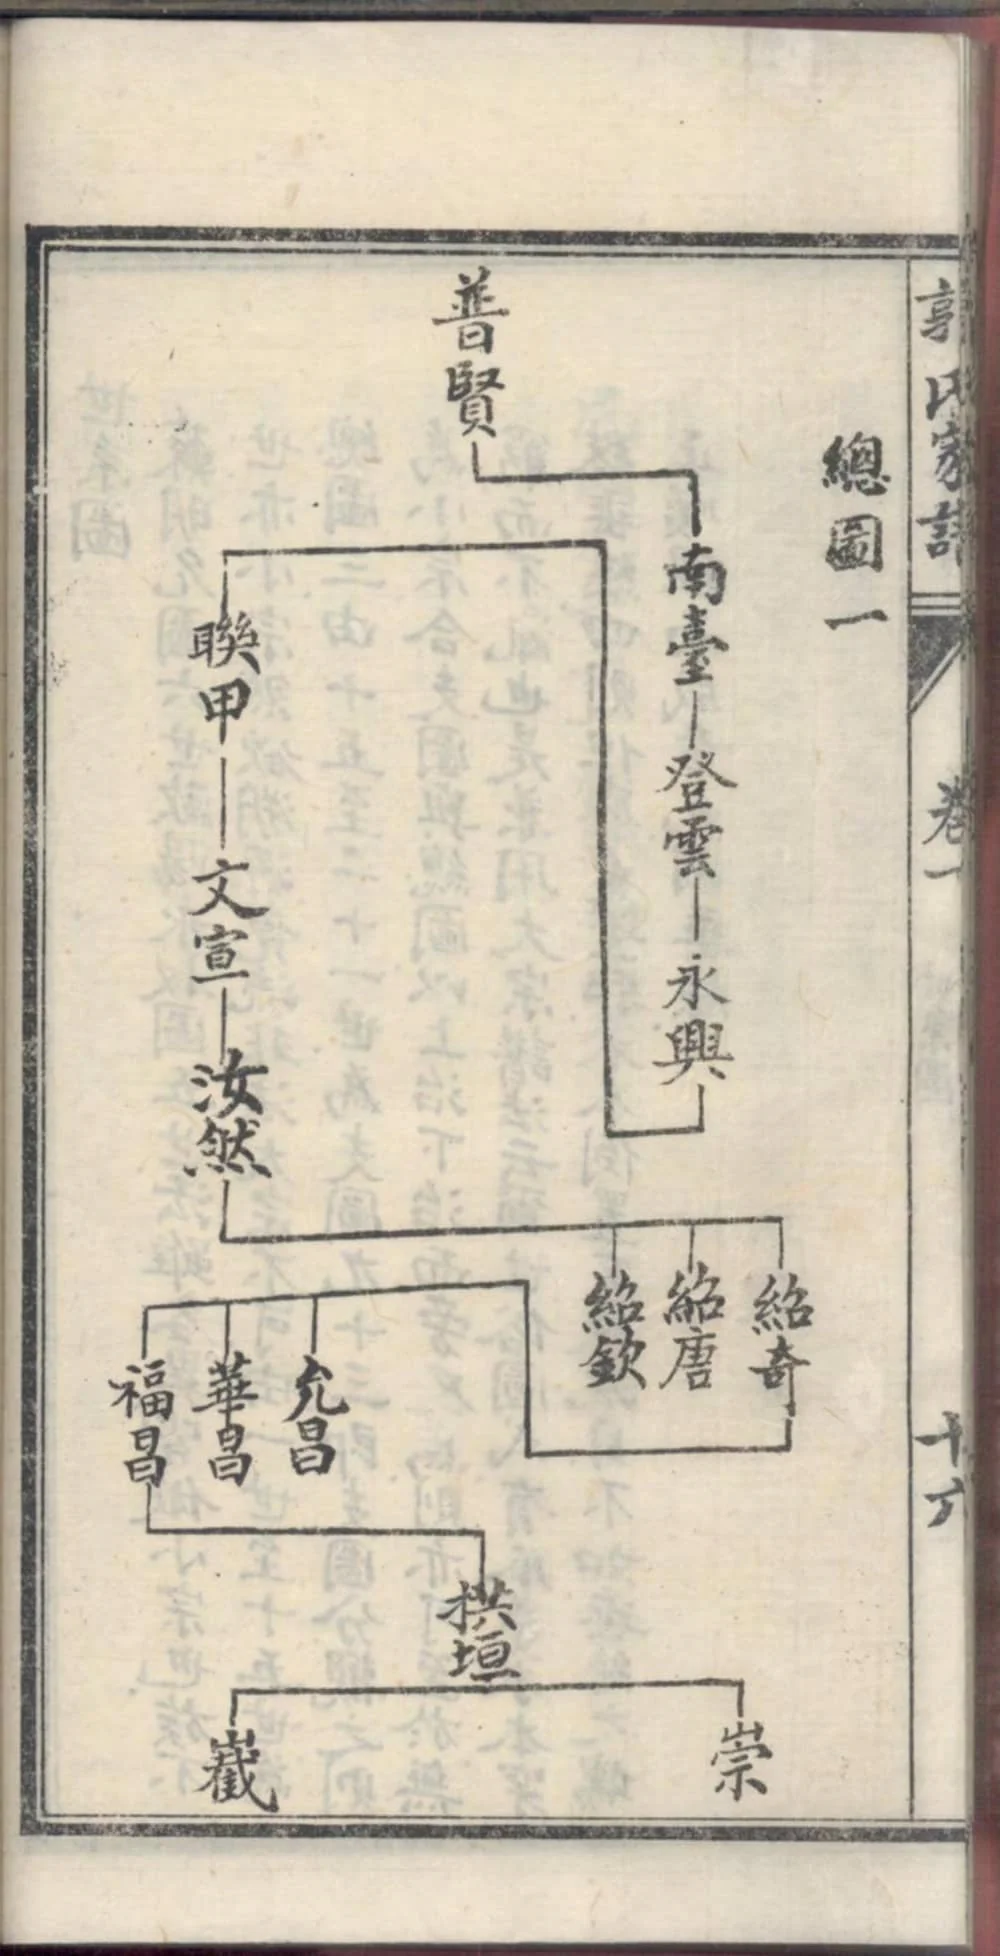 郭氏家譜
卷一
十六
總圖一
普賢
南臺
登雲
永興
聯甲
文宣
汝然
紹奇
紹唐
紹欽
允昌
華昌
福昌
拱垣
崇